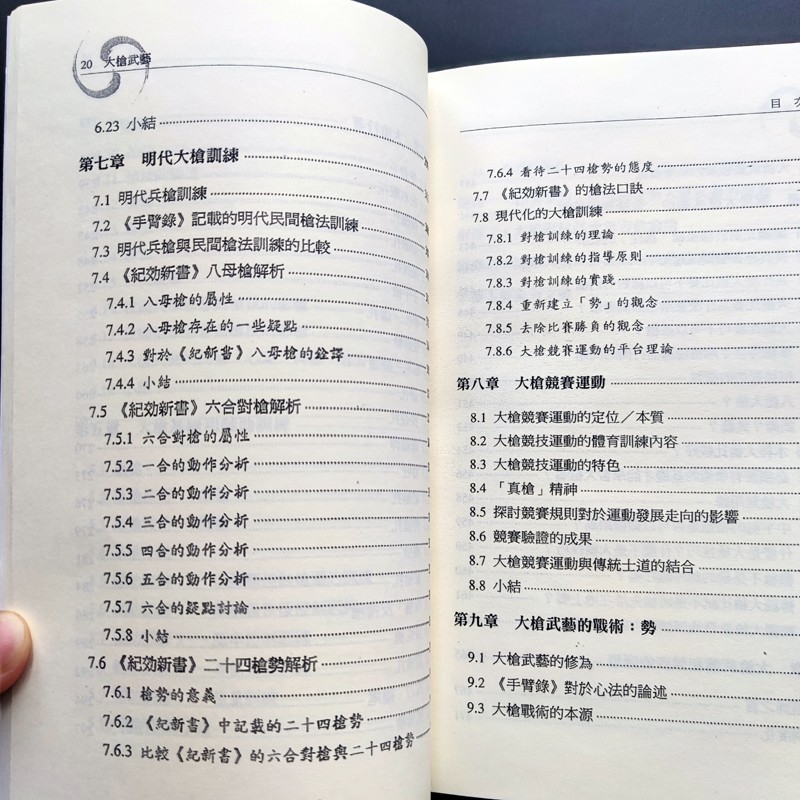 20 大槍武藝
6.23 小結
第七章 明代大槍訓練
7.1 明代兵槍訓練
7.2 《手臂錄》記載的明代民間槍法訓練
7.3 明代兵槍與民間槍法訓練的比較
7.4 《紀効新書》八母槍解析
7.4.1 八母槍的屬性
7.4.2 八母槍存在的一些疑點
7.4.3 對於《紀新書》八母槍的詮譯
7.4.4 小結
7.5 《紀効新書》六合對槍解析
7.5.1 六合對槍的屬性
7.5.2 一合的動作分析
7.5.3 二合的動作分析
7.5.4 三合的動作分析
7.5.5 四合的動作分析
7.5.6 五合的動作分析
7.5.7 六合的疑點討論
7.5.8 小結
7.6 《紀効新書》二十四槍勢解析
7.6.1 槍勢的意義
7.6.2 《紀新書》中記載的二十四槍勢
7.6.3 比較《紀新書》的六合對槍與二十四槍勢
目
7.6.4 看待二十四槍勢的態度
7.7 《紀効新書》的槍法口訣
7.8 現代化的大槍訓練
7.8.1 對槍訓練的理論
7.8.2 對槍訓練的指導原則
7.8.3 對槍訓練的實踐
7.8.4 重新建立「勢」的觀念
7.8.5 去除比賽勝負的觀念
7.8.6 大槍競賽運動的平台理論
第八章 大槍競賽運動
8.1 大槍競賽運動的定位／本質
8.2 大槍競技運動的體育訓練內容
8.3 大槍競技運動的特色
8.4 「真槍」精神
8.5 探討競賽規則對於運動發展走向的影響
8.6 競賽驗證的成果
8.7 大槍競賽運動與傳統士道的結合
8.8 小結
第九章 大槍武藝的戰術：勢
9.1 大槍武藝的修為
9.2 《手臂錄》對於心法的論述
9.3 大槍戰術的本源